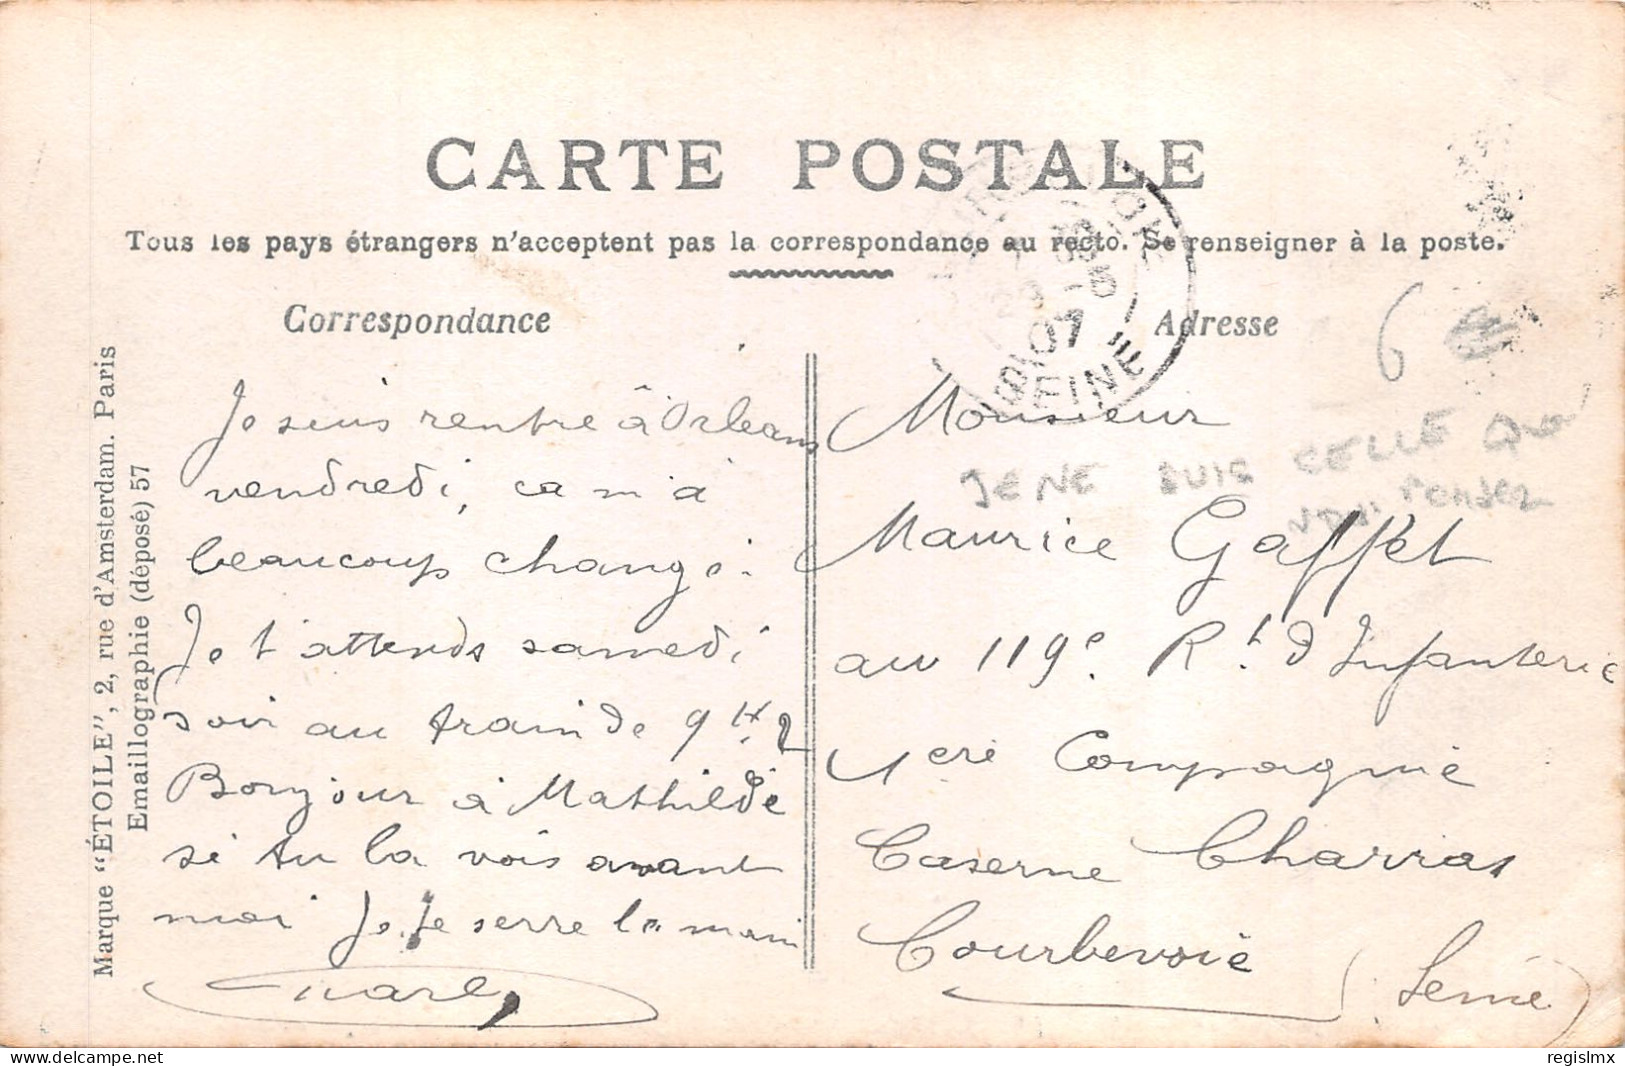 CARTE POSTALE
Tous les pays étrangers n'acceptent pas la correspondance au recto. Se renseigner à la poste.
Correspondance
Je suis rentré à Orléans
vendredi, ca m'a
beaucoup changé.
Je t'attends samedi
soir au train de 9 H. 2
Bonjour à Mathilde
si tu la vois avant
moi Je te serre la main
Adresse
6
Monsieur
JE NE SUIS CELLE QUE
VOUS PENSEZ
Maurice Gaffet
au 119e Rt d'Infanterie
1ere Compagnie
Caserne Charras
Courbevoie
(Seine)
07
SEINE
Marque "ÉTOILE", 2, rue d'Amsterdam. Paris
Emaillographie (déposé) 57
delcampe.net
regislmx